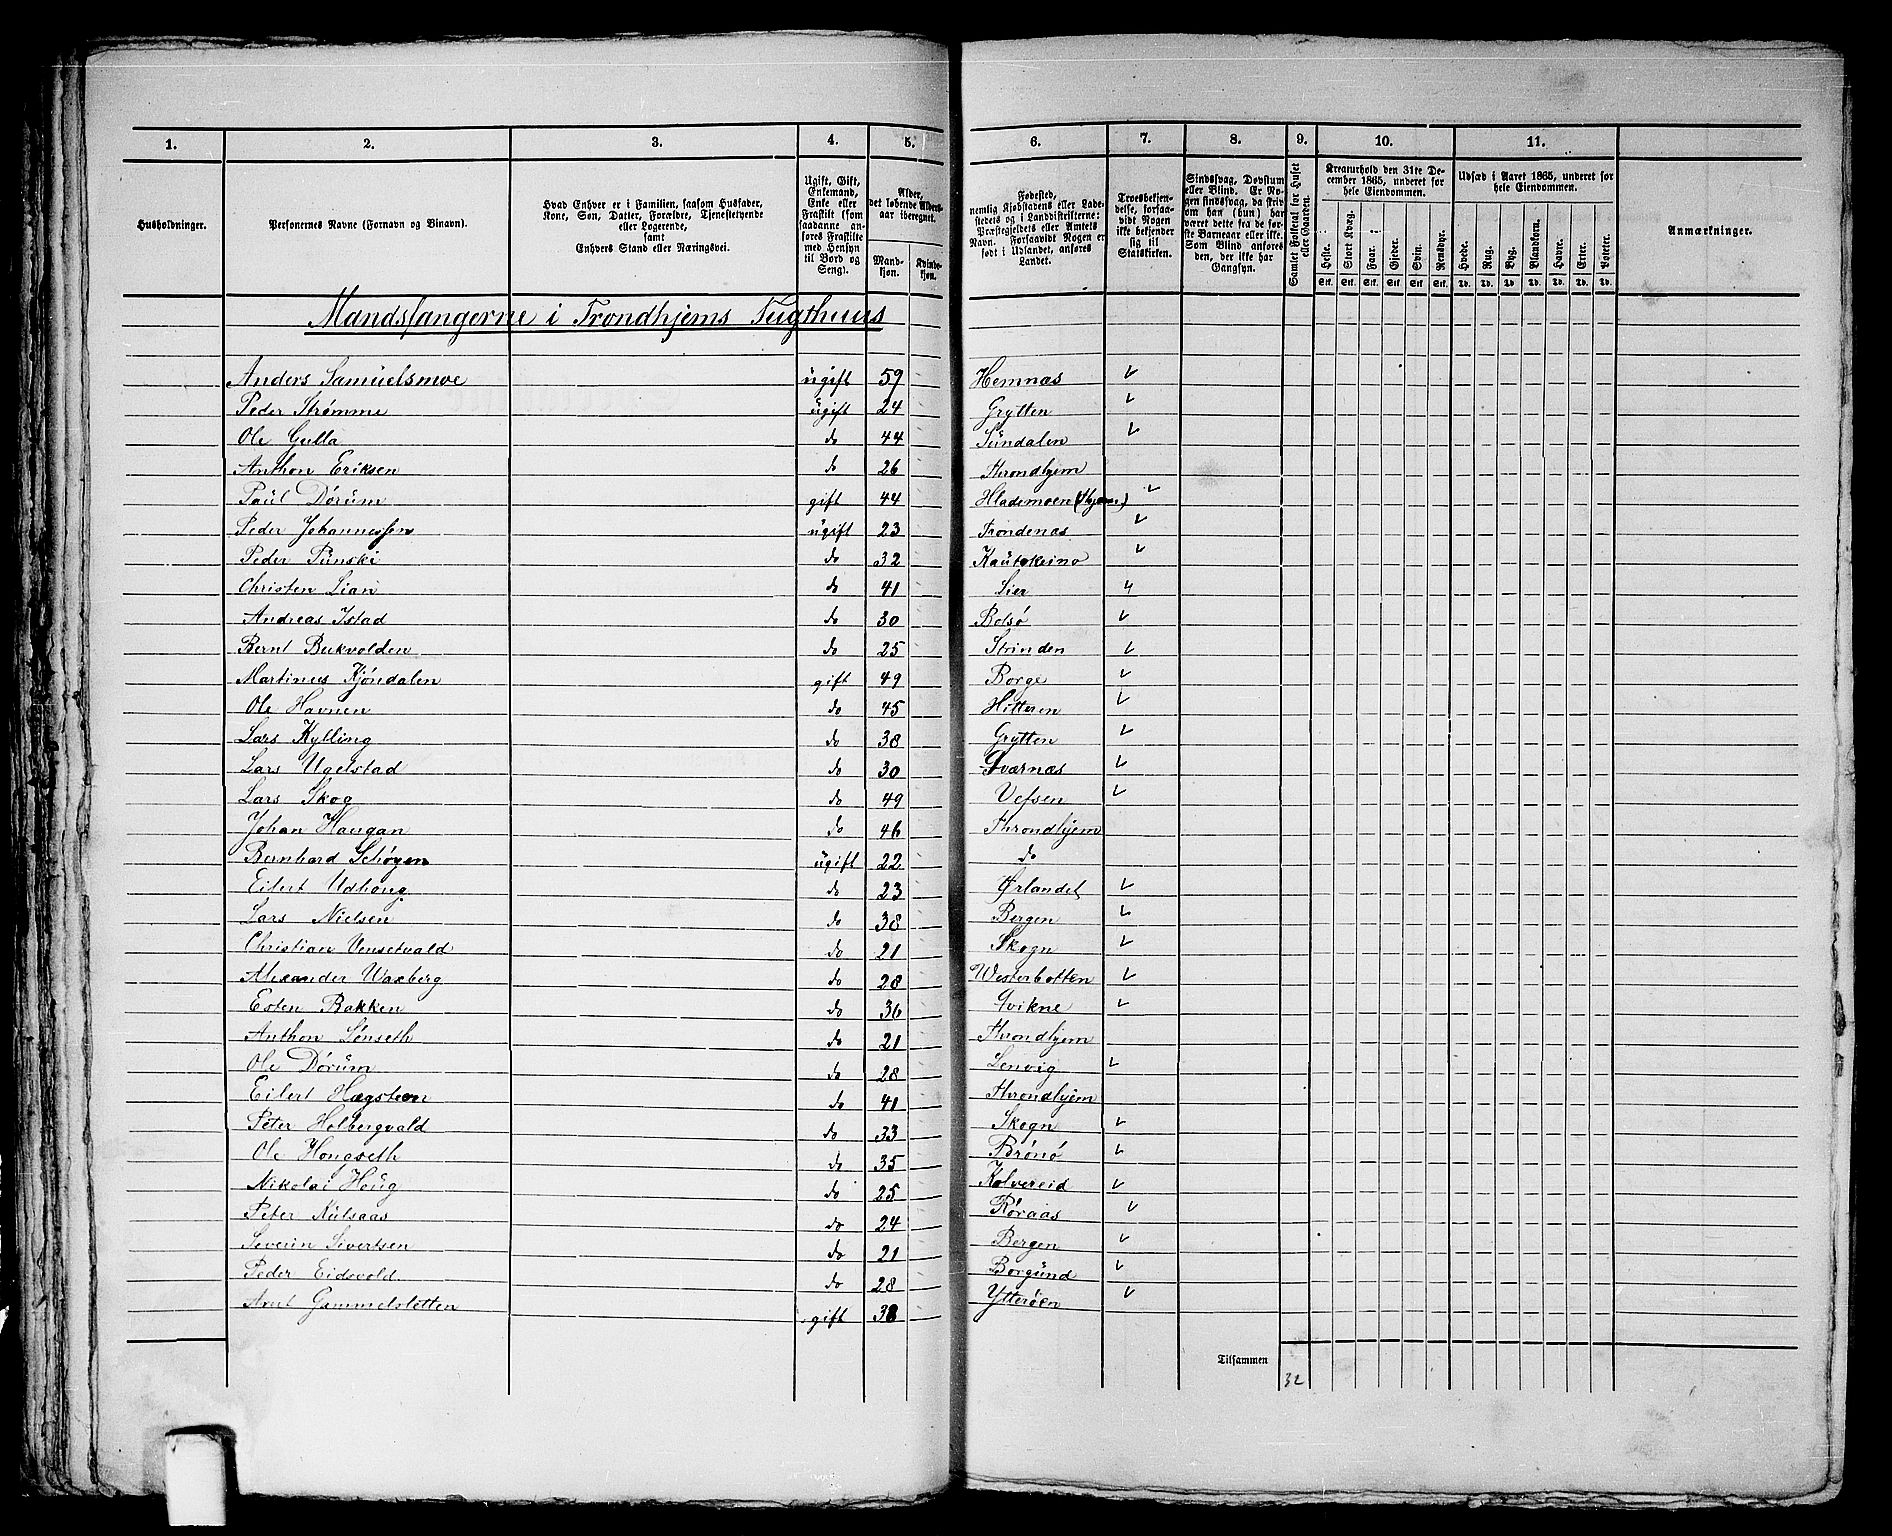 1. 2. 3. 4. 5. 6. 7. 8. 9. 10. 11.
Husholdninger.
Personernes Navne (Fornavn og Binavn).
Hvad Enhver er i Familien, saasom Husfader,
Kone, Søn, Datter, Forældre, Tjenestetyende
eller Logerende,
samt
Enhvers Stand eller Næringsvei.
Ugift, Gift,
Enkemand,
Enke eller
Fraskilt (som
saadanne an-
føres Fraskilte
med Hensyn
til Bord og
Seng).
Alder,
det løbende Alders-
aar iberegnet.
Mand-
kjøn.
Kvinde-
kjøn.
Fødested,
nemlig Kjøbstadens eller Lade-
stedets og i Landdistrikterne:
Præstegjeldets eller Amtets
Navn. Forsaavidt Nogen er
født i Udlandet, anføres
Landet.
Troesbekjen-
delse, forsaa-
vidt Nogen
ikke bekjender
sig til
Statskirken.
Sindssvag, Døvstum
eller Blind. Er No-
gen sindssvag, da skriv
om han (hun) har
været dette fra de før-
ste Barneaar eller ikke.
Som Blind anføres
den, der ikke har
Gangsyn.
Samlet Folketal for Huset
eller Gaarden.
Kreaturhold den 31te De-
cember 1865, underet for
hele Eiendommen.
Heste. Stort Kvæg. Faar. Gjeder. Svin. Rensdyr.
Stk. Stk. Stk. Stk. Stk. Stk.
Udsæd i Aaret 1865, underet for
hele Eiendommen.
Hvede. Rug. Byg. Blandkorn. Havre. Erter. Poteter.
Td. Td. Td. Td. Td. Td. Td.
Anmærkninger.
Mandsfangerne i Trondhjems Tugthuus
Anders Samuelsmoe ugift 59 Hemnæs
Peder Strømme ugift 24 Grytten
Ole Gulla do 44 Sundalen
Anthon Eriksen do 26 Throndhjem
Paul Dørum gift 44 Hlademoen
Peder Johannessen ugift 23 Trondenæs
Peder Punski do 32 Kautokeino
Christen Lian do 41 Lier
Andreas Istad do 30 Bolsø
Bernt Bukvolden do 25 Strinden
Martinus Kjøndalen gift 49 Borge
Ole Havnen do 45 Hitteren
Lars Kylling do 38 Grytten
Lars Ugelstad do 30 Qværnæs
Lars Skog do 49 Vefsen
Johan Haugan do 46 Throndhjem
Bernhard Schøyen ugift 22 do
Eilert Udhoug do 23 Ørlandet
Lars Nielsen do 38 Bergen
Christian Vensetvald do 21 Skogn
Alexander Waxberg do 28 Westerbotten
Esten Bakken do 36 Qvikne
Anthon Lønseth do 21 Throndhjem
Ole Dørum do 28 Lenvig
Eilert Hægsteen do 41 Throndhjem
Peter Holbergvald do 33 Skogn
Ole Hongseth do 35 Brønø
Nikolai Houg do 25 Kolvereid
Peter Nilsaas do 24 Røraas
Severin Sivertsen do 21 Bergen
Peder Eidsvold do 28 Borgund
Arnt Gammelsletten gift 38 Ytterøen
Tilsammen
32